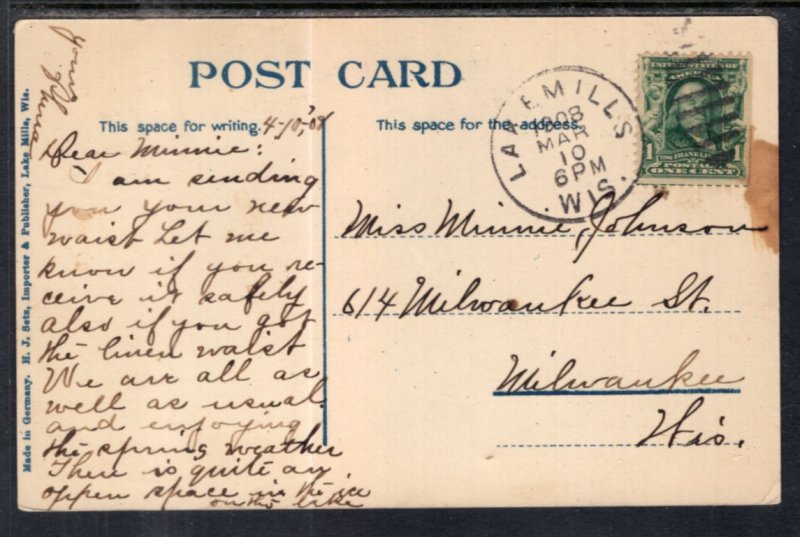 POST CARD
This space for writing. 4-10,'08
This space for the address.
Dear Minnie:
I am sending
you your new
waist Let me
know if you re-
ceive it safely
also if you got
the linen waist
We are all as
well as usual
and enjoying
the spring weather
There is quite an
oppen space in the ice
on the lake
Yours
LAKE MILLS
1908
MAR
10
6 PM
WIS.
UNITED STATES OF AMERICA
1 1
POSTAGE
ONE CENT
Miss Minnie Johnson
614 Milwaukee St.
Milwaukee
Wis.
Made in Germany. H. J. Setz, Importer & Publisher, Lake Mills, Wis.